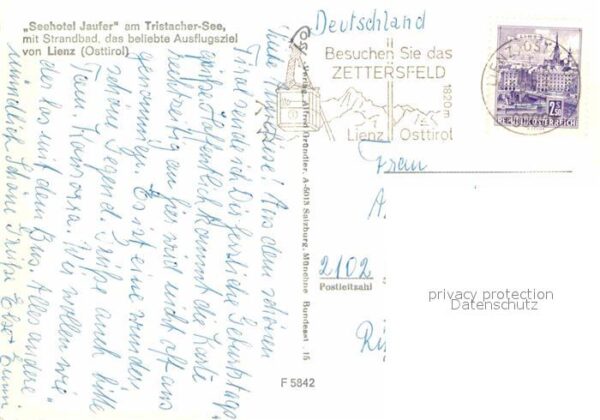 „Seehotel Jaufer“ am Tristacher-See,
mit Strandbad, das beliebte Ausflugsziel
von Lienz (Osttirol)
Aus dem schönen
Tirol sende ich Dir herzliche Geburtstags-
grüße. Hoffentlich kommt die Karte
rechtzeitig an hier wird nicht oft aus-
Es ist eine wunder-
schöne Gegend. Grüße auch bitte
Fam. Wir wollen wie-
der los mit dem Bus. Alles andere
mündlich Schöne Grüße Else +
Verlag Alfred Gründler, A-5013 Salzburg, Münchner Bundesstr. 15
F 5842
Deutschland
Besuchen Sie das
ZETTERSFELD
1820m
Lienz Osttirol
LIENZ, OST
2.50
REPUBLIK ÖSTERREICH
Frau
A
2102
Postleitzahl
privacy protection
Datenschutz